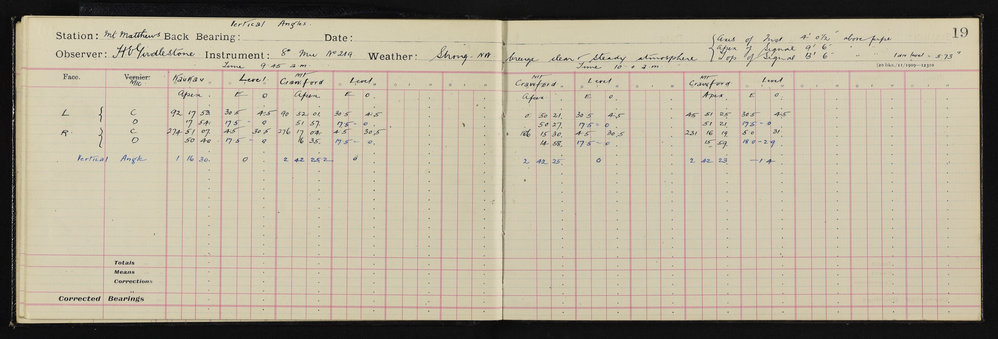 Vertical Angles.
Station: Mt Matthews Back Bearing: Date:
Observer: H V Girdlestone Instrument: 8" Mic No 219 Weather: Strong NW breeze clear & steady atmosphere
{Axis of Inst 4' 0½" above pipe
{Apex of Signal 9' 6" " "
{Top of Signal 13' 6" " "
19
1 div level = 3.73"
Time 9.45 a.m.
Time 10.0 a.m
Face. Vernier: Mic Kaukau Level Mt Crawford Level Mt Crawford Level Mt Crawford Level
Apex E O Apex E O. Apex E O. Apex E O
L { C 92 17 53 30.5 4.5 90 52 01 30.5 4.5 0 50 21 30.5 4.5 45 51 25 30.5 4.5
D 17 54 17.5 - 0 51 57 17.5 - 0 50 27 17.5 - 0 51 21 17.5 - 0
R { C 274 51 07 4.5 30.5 276 17 04 4.5 30.5 186 15 30 4.5 30.5 231 16 19 5.0 31
D 50 40 17.5 - 0 16 35 17.5 - 0 14 58 17.5 - 0 15 59 18.0 - 2.9
Vertical Angle 1 16 30. 0 2 42 25.2 0 2 42 25. 0 2 42 23 -1.4
Totals
Means
Corrections
Corrected Bearings